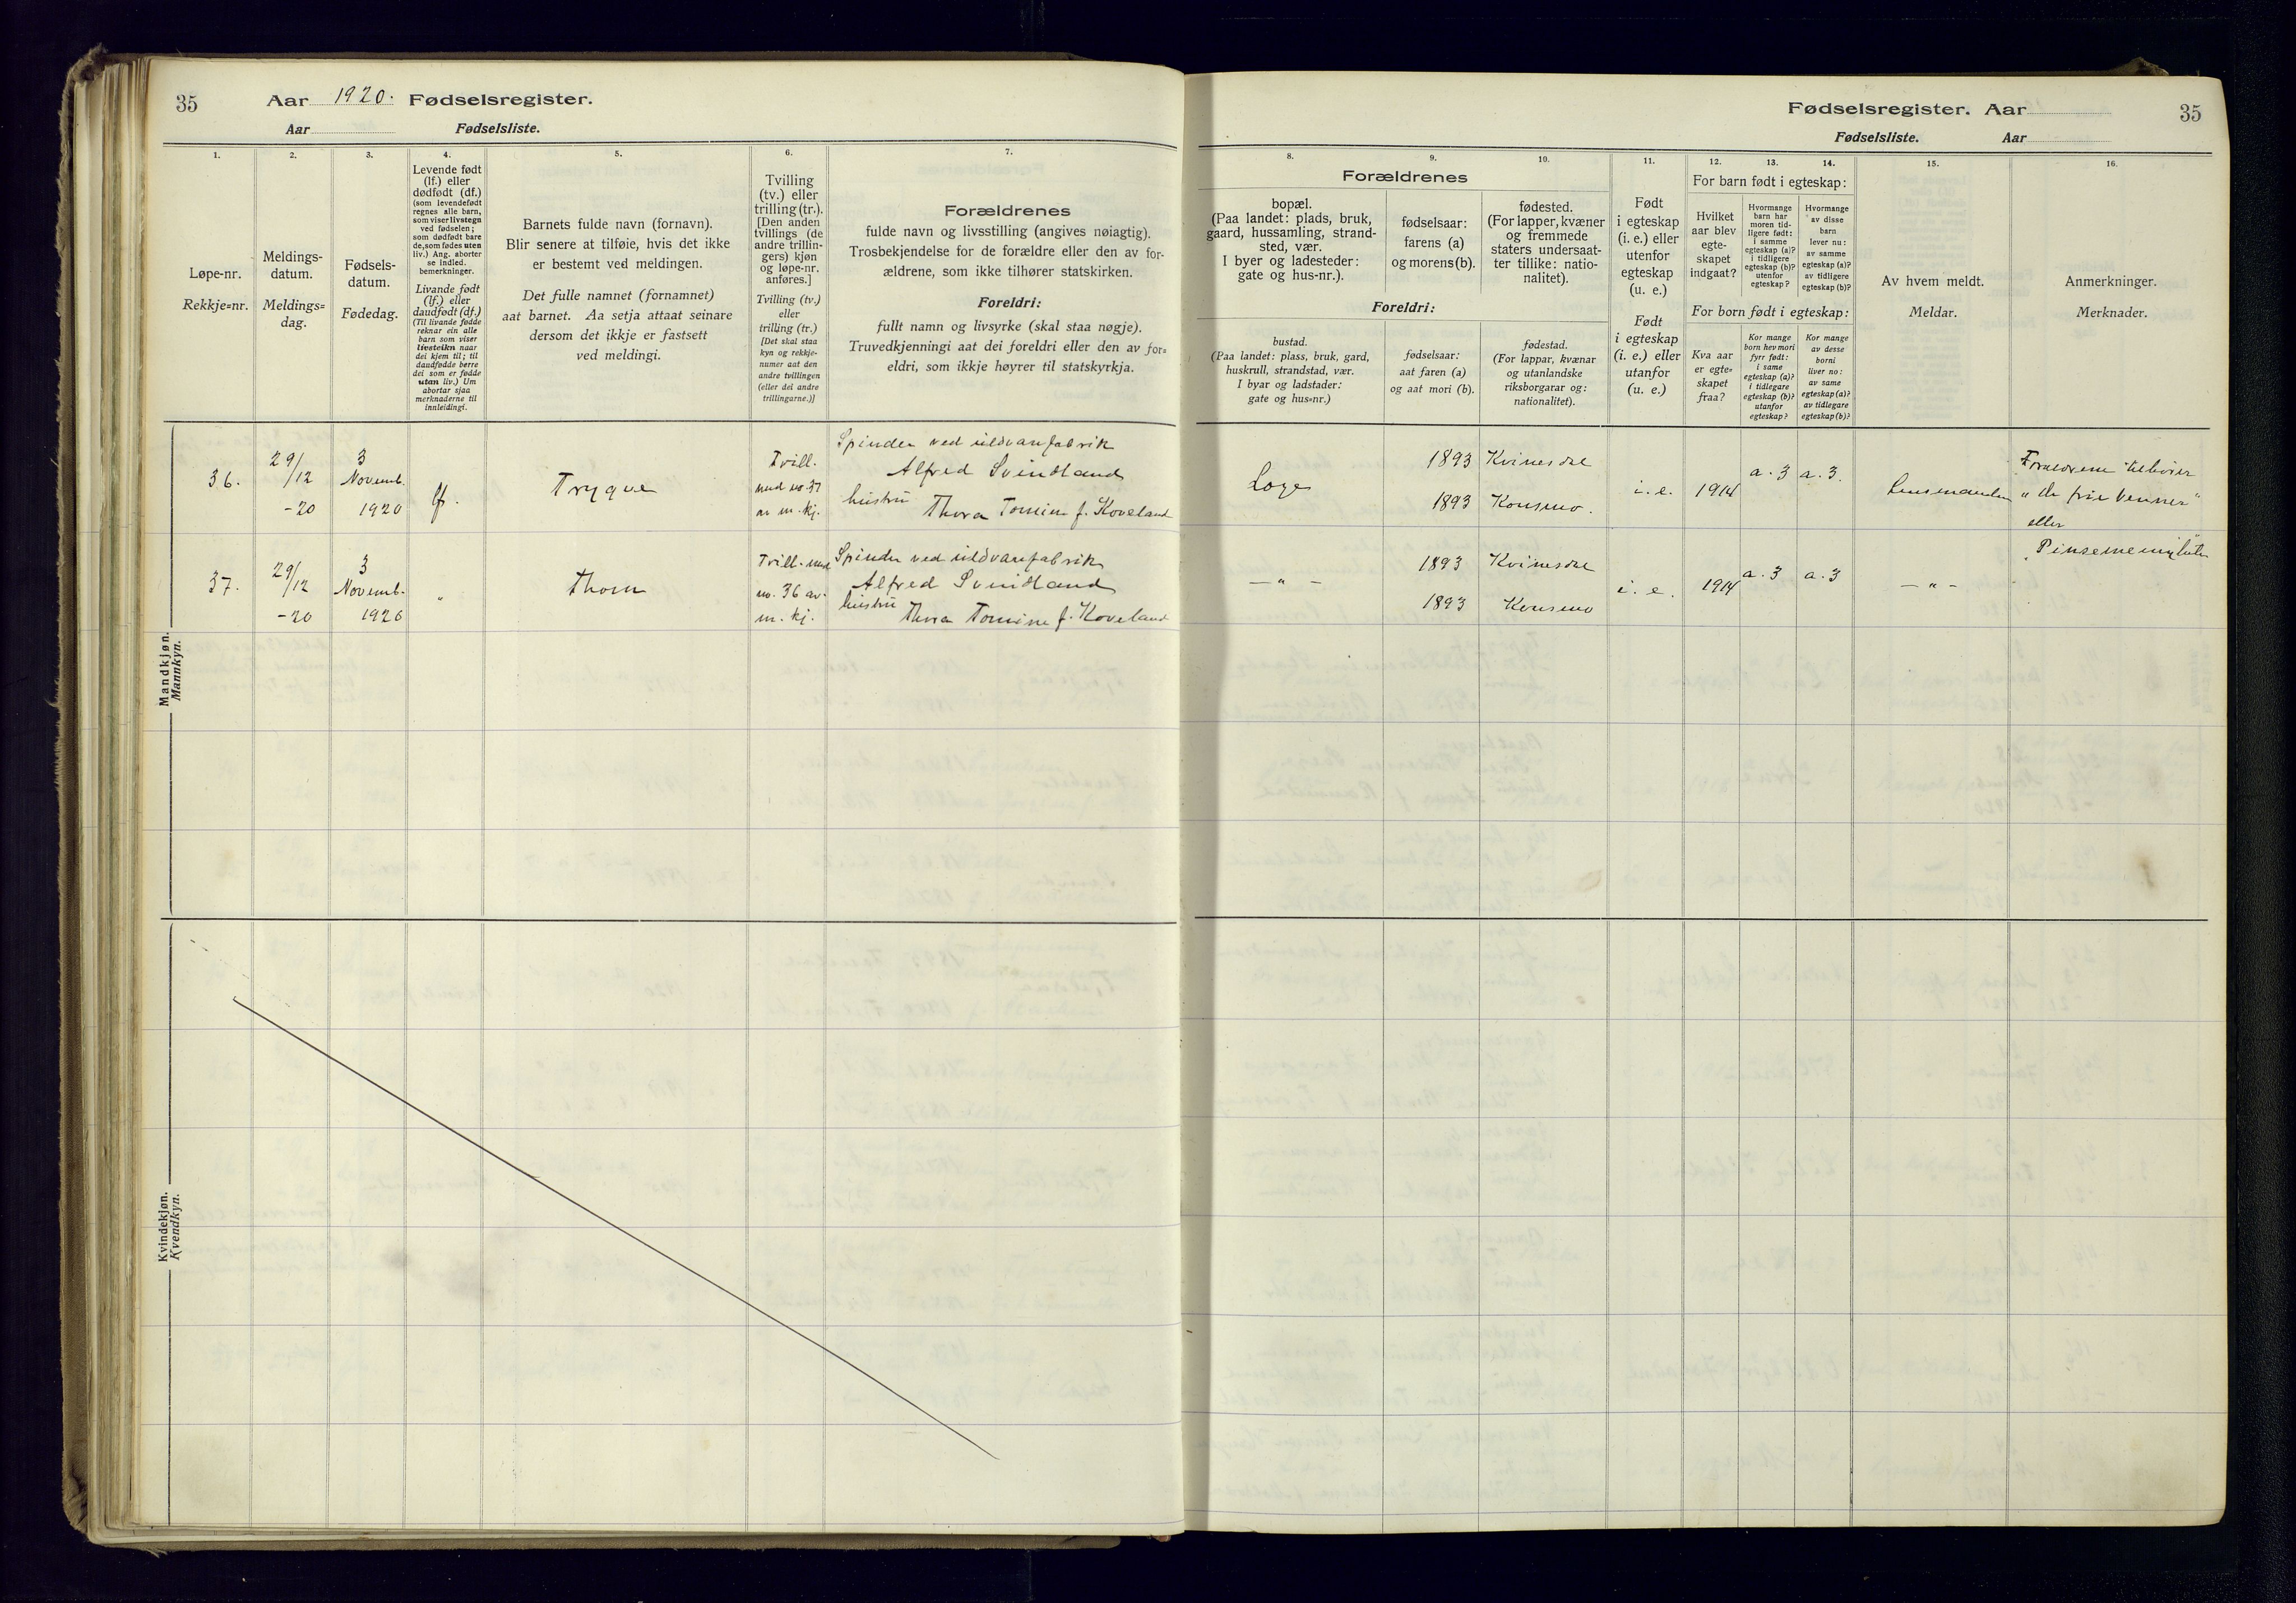 35
Aar 1920. Fødselsregister.
Aar Fødselsliste.
1.
Løpe-nr.
Rekkje=nr.
2.
Meldings-
datum.
Meldings=
dag.
3.
Fødsels-
datum.
Fødedag.
4.
Levende født
(lf.) eller
dødfødt (df.)
(som levendefødt
regnes alle barn,
som viser livstegn
ved fødselen;
som dødfødt bare
de, som fødes uten
liv.) Ang. aborter
se indled.
bemerkninger.
Livande født
(lf.) eller
daudfødt (df.)
(Til livande fødde
reknar ein alle
barn som viser
livsteikn naar
dei kjem til; til
daudfødde berre
dei som er fødde
utan liv.) Um
abortar sjaa
merknaderne til
innleidingi.
5.
Barnets fulde navn (fornavn).
Blir senere at tilføie, hvis det ikke
er bestemt ved meldingen.
Det fulle namnet (fornamnet)
aat barnet. Aa setja attaat seinare
dersom det ikkje er fastsett
ved meldingi.
6.
Tvilling
(tv.) eller
trilling (tr.).
[Den anden
tvillings (de
andre trillin-
gers) kjøn
og løpe-nr.
anføres.]
Tvilling (tv.)
eller
trilling (tr.)
[Det skal staa
kyn og rekkje-
numer aat den
andre tvillingen
(eller dei andre
trillingarne.)]
7.
Forældrenes
fulde navn og livsstilling (angives nøiagtig).
Trosbekjendelse for de forældre eller den av for-
ældrene, som ikke tilhører statskirken.
Foreldri:
fullt namn og livsyrke (skal staa nøgje).
Truvedkjenningi aat dei foreldri eller den av for=
eldri, som ikkje høyrer til statskyrkja.
Mandkjøn.
Mannkyn.
36.
29/12
-20
3
Novemb.
1920
lf.
Trygve
Tvill.
med no. 37
av m. kj.
Spinder ved uldvarefabrik
Alfred Svindland
hustru
Thora Tomine f. Koveland
37.
29/12
-20
3
Novemb.
1920
"
Thom
Tvill. med
no. 36 av
m. kj.
Spinder ved uldvarefabrik
Alfred Svindland
hustru
Thora Tomine f. Koveland
Kvindekjøn.
Kvendkyn.
Fødselsregister. Aar
35
Fødselsliste. Aar
8.
Forældrenes
bopæl.
(Paa landet: plads, bruk,
gaard, hussamling, strand-
sted, vær.
I byer og ladesteder:
gate og hus-nr.).
Foreldri:
bustad.
(Paa landet: plass, bruk, gard,
huskrull, strandstad, vær.
I byar og ladstader:
gate og hus=nr.)
9.
fødselsaar:
farens (a)
og morens (b).
fødselsaar:
aat faren (a)
og aat mori (b).
10.
fødested.
(For lapper, kvæner
og fremmede
staters undersaat-
ter tillike: natio-
nalitet).
fødestad.
(For lappar, kvænar
og utanlandske
riksborgarar og:
nationalitet).
11.
Født
i egteskap
(i. e.) eller
utenfor
egteskap
(u. e.)
Født
i egteskap
(i. e.) eller
utanfor
(u. e.)
12.
13.
14.
For barn født i egteskap:
Hvilket
aar blev
egte-
skapet
indgaat?
Hvormange
barn har
moren tid-
ligere født:
i samme
egteskap (a)?
i tidligere
egteskap (b)?
utenfor
egteskap?
Hvormange
av disse
barn
lever nu:
av samme
egteskap (a)?
av tidligere
egteskap (b)?
For born født i egteskap:
Kva aar
er egte=
skapet
fraa?
Kor mange
born hev mori
fyrr født:
i same
egteskap (a)?
i tidlegare
egteskap (b)?
utanfor
egteskap?
Kor mange
av desse
borni
liver no:
av same
egteskap (a)?
av tidlegare
egteskap (b)?
15.
Av hvem meldt.
Meldar.
16.
Anmerkninger.
Merknader.
Loge
1893
1893
Kvinesdal
Konsmo.
i. e.
1914
a. 3
a. 3.
Lensmanden
Forældrene tilhører
"de frie venner"
eller
"Pinsemenigheten
— " —
1893
1893
Kvinesdal
Konsmo
i. e.
1914
a. 3
a. 3
— " —